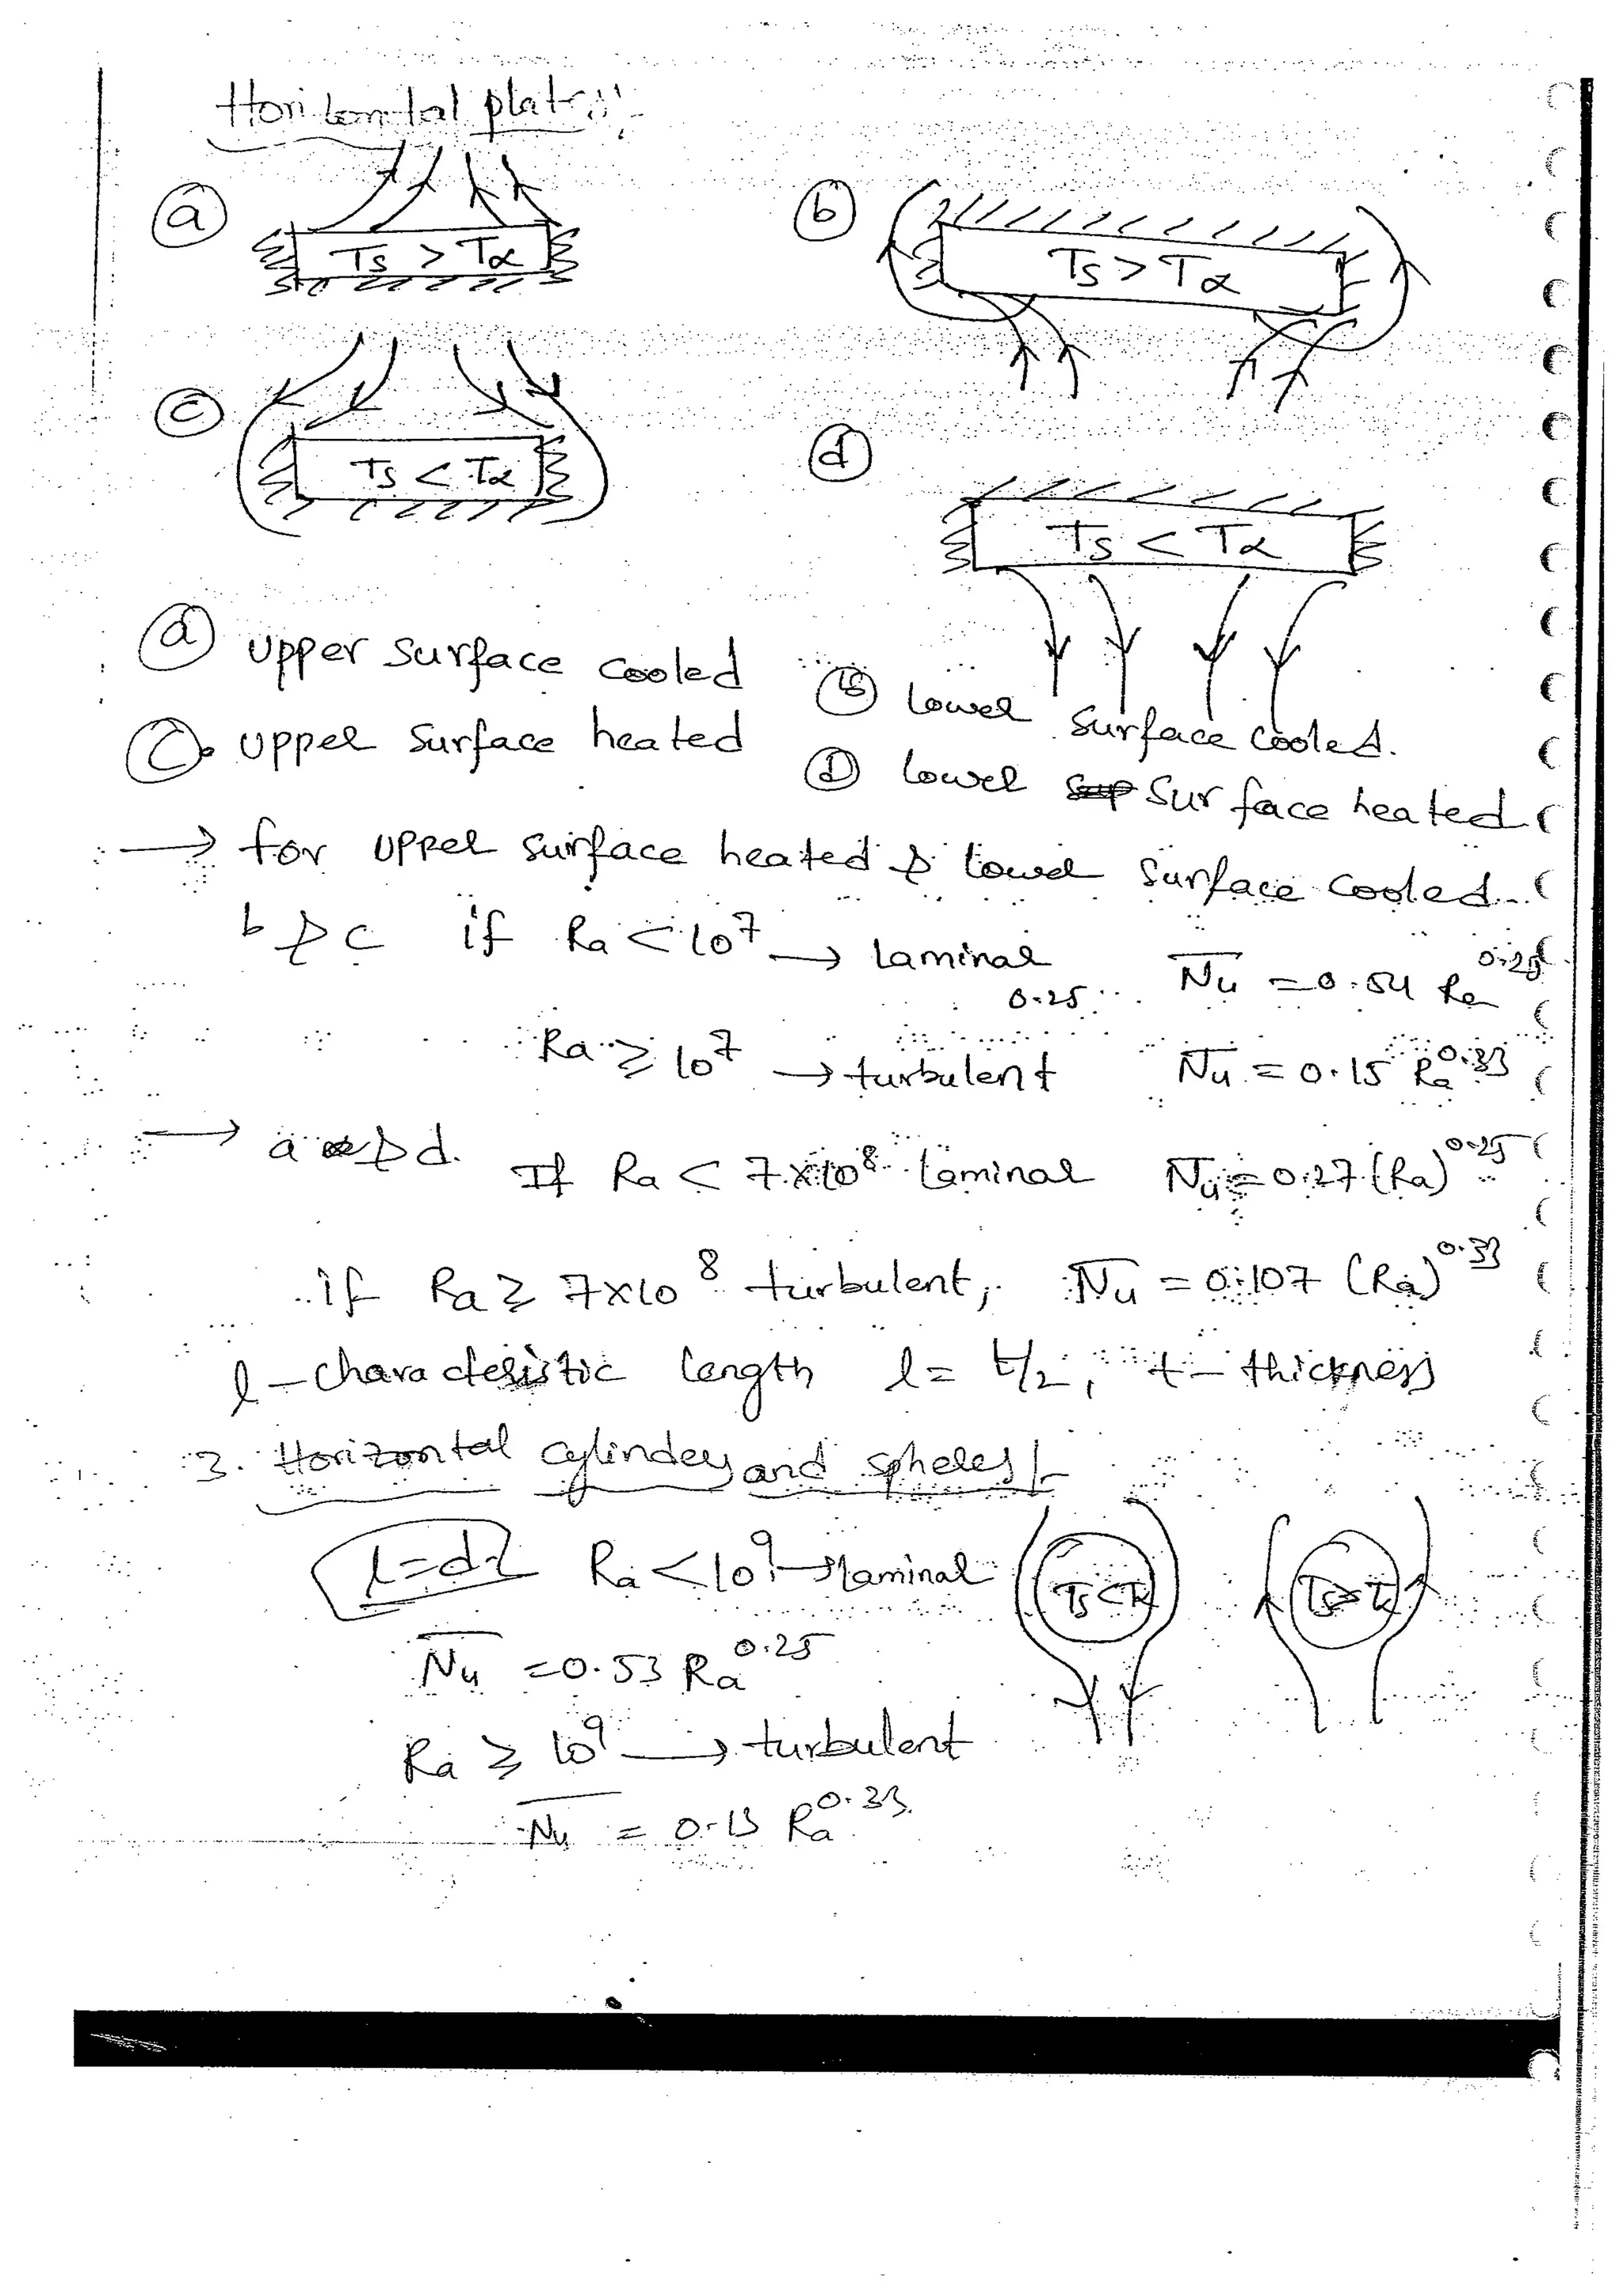 Horizontal plates:
a
Ts > Tα
b
Ts > Tα
c
Ts < Tα
d
Ts < Tα
a upper surface cooled
b lower surface cooled.
c. upper surface heated
d lower surface heated
→ for upper surface heated & lower surface cooled..
b & c if Ra < 10^7 → laminar N̅u = 0.54 Ra^0.25
0.25
Ra ≥ 10^7 → turbulent N̅u = 0.15 Ra^0.33
→ a & d. If Ra < 7×10^8 laminar N̅u = 0.27 (Ra)^0.25
if Ra ≥ 7×10^8 turbulent, N̅u = 0.107 (Ra)^0.33
l – characteristic length l = t/2, t – thickness
3. Horizontal cylinders and spheres/-
l = d Ra < 10^9 → laminar
Ts < Tα
Ts > Tα
N̅u = 0.53 Ra^0.25
Ra ≥ 10^9 → turbulent
N̅u = 0.13 Ra^0.33